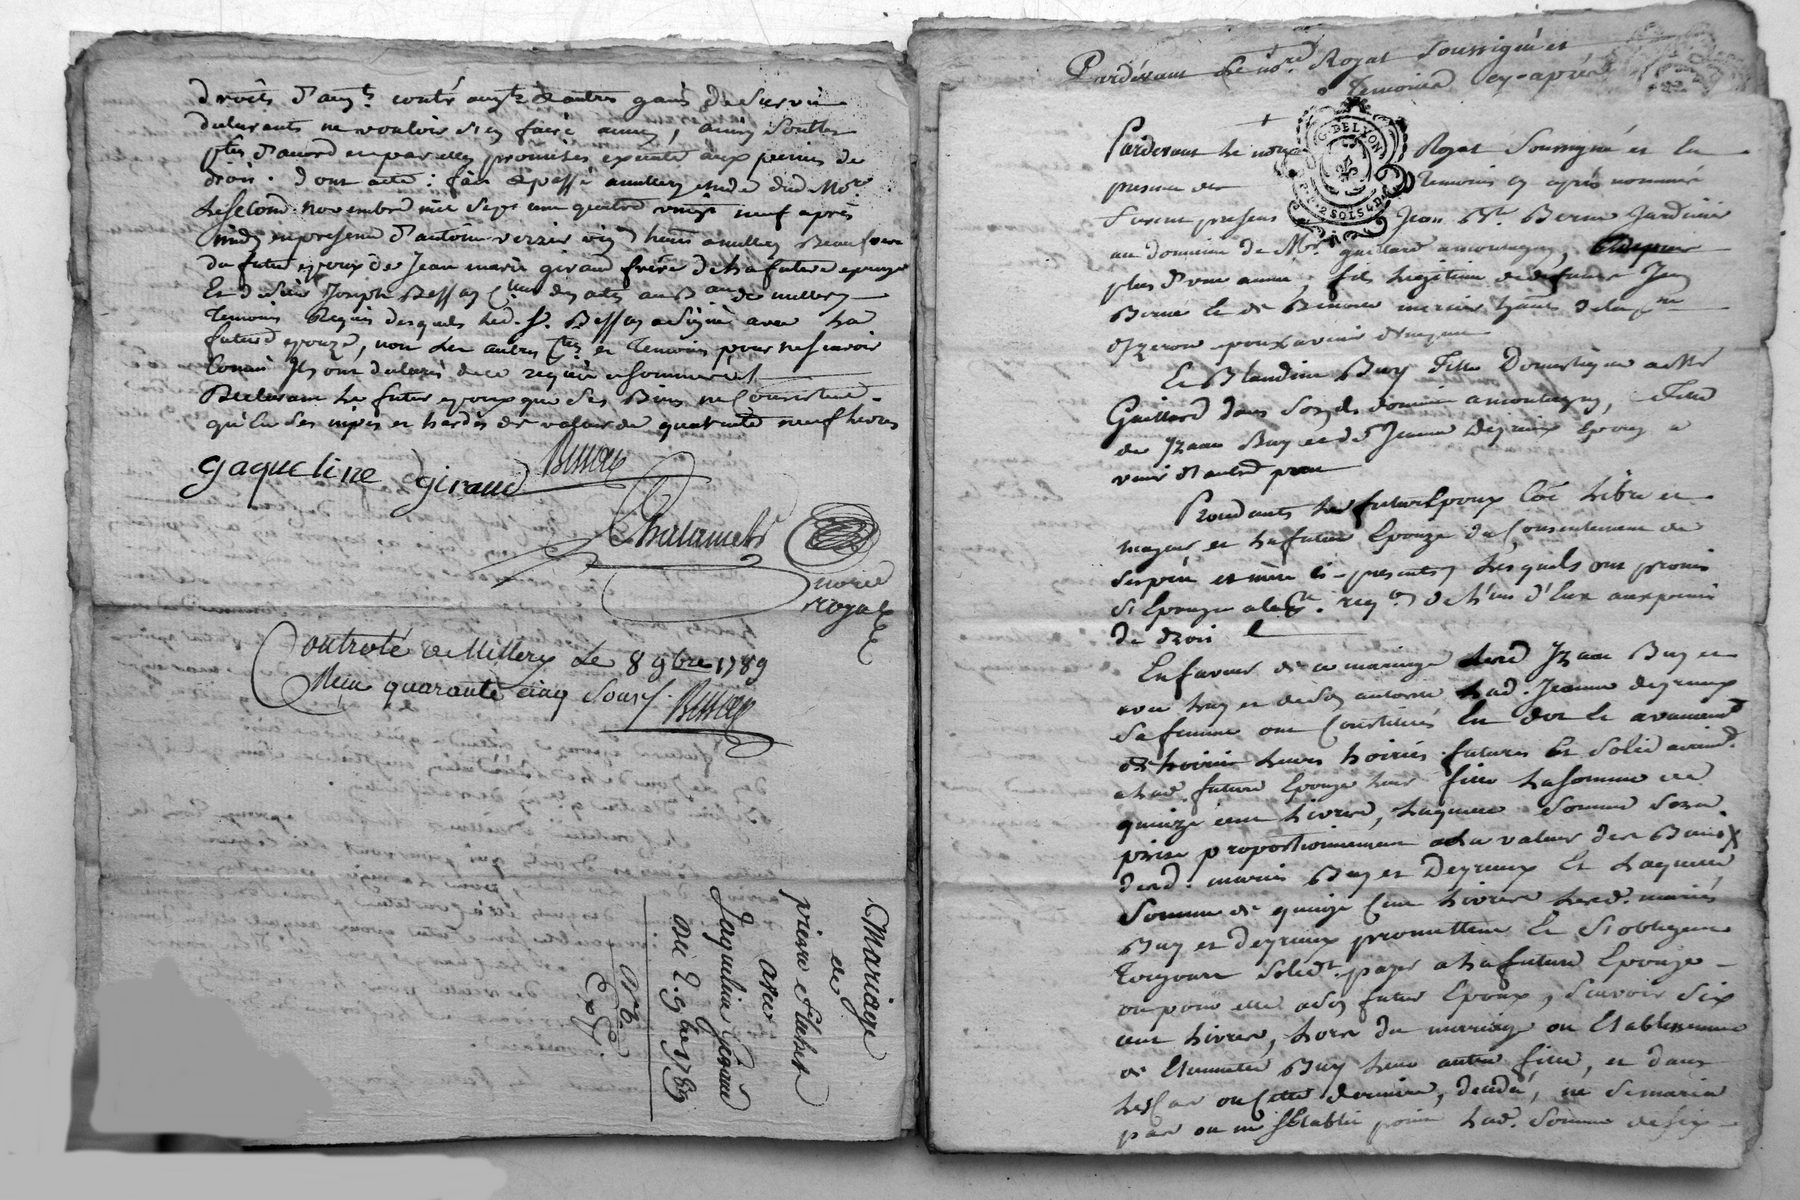 droits d'augts contre augts & autres gains de survie
declarants ne vouloir s'en faire aucun, ainsi
d'acord en par elles promises executé aux peines de
droit. dont acte: fait & passé a millery etude dud. Nore
le second novembre mil sept cent quatre vingt neuf après
midy en presence d'antoine verzier a millery Beaufrere
du futur epoux de Jean marie giraud frère de la future epouze
Et de Sieur Joseph Bessay des actes au Bau de millery
Temoins Requis desquels led. S. Bessay a signé avec la
future epouze, non les autres pties et Temoins pour ne sçavoir
comme ils ont declaré de ce requis et sommés
Declarant le futur epoux que ses Biens ne Consistent
qu'en ses nipes et hardes de valeur de quarante neuf livres
Gaqueline giraud
Bessay
Chalamel
notre
royal
Controlé a Millery Le 8 9bre 1789
Reçu quarante cinq sous Bessay
Mariage
de
pierre
avec
Jaqueline Giraud
du 2. 9bre 1789
Exp.
Pardevant le nore Royal Soussigné et
Temoins cy-après
G. DE LYON
2 SOLS 4 D
Pardevant le nore Royal Soussigné et En
presence des Temoins cy après nommés
Furent presens Jean Bte Berne Jardinier
au domaine de Mr. Guillard a montagny, depuis
plus d'une année, fils Legitime de defunt Jean
Berne et de Benoite mercier habts de la pse
d'yzeron epoux a venir d'une part
Et Blandine Buy fille Domestique a Mr
Guillard dans Son dt domaine a montagny, fille
de Izaac Buy et de Jeanne Degrieux Epouze a
venir d'autre part
Procedants Le futur Epoux Coe Libre et
majeur et La future Epouze du Consentement de
Ses père et mère ci-presents, Lesquels ont promis
s'Epouzer a la pre. reqon de L'un d'Eux aux peines
de droit
En faveur de ce mariage Led. Izaac Buy et
avec Luy et de Son autorité Lad. Jeanne degrieux
Sa femme ont Constitués En dot Et avancement
de hoirie Leurs hoiries futures Et Solidairemt
a Lad. future Epouze Leur fille La somme de
quinze cent Livres, Laquelle Somme Sera
prise proportionnement a La valeur des Biens
desd. mariés Buy et Degrieux Et Laquelle
Somme de quinze Cent Livres Lesd. mariés
Buy et degrieux promettent Et S'obligent
Toujours Solidt. payer a La future Epouze
ou pour elle a Son futur Epoux, Savoir Six
cent Livres, Lors du mariage ou Etablissement
de Buy Leur autre fille, et dans
Le Cas ou Cette derniere, decedé, ne se maria
pas ou ne S'Etablit point Lad. Somme de Six